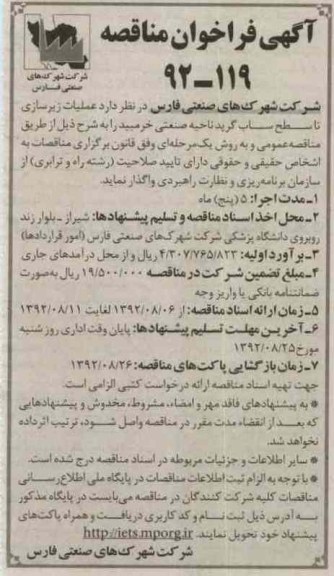 آگهی فراخوان مناقصه
۱۱۹-۹۲
شرکت شهرک‌های
صنعتی فارس
شرکت شهرک‌های صنعتی فارس در نظر دارد عملیات زیرسازی
تا سطح ساب گرید ناحیه صنعتی خرمبید را به شرح ذیل از طریق
مناقصه عمومی و به روش یک مرحله‌ای وفق قانون برگزاری مناقصات به
اشخاص حقیقی و حقوقی دارای تایید صلاحیت (رشته راه و ترابری) از
سازمان برنامه‌ریزی و نظارت راهبردی واگذار نماید.
۱-مدت اجرا: ۵ (پنج) ماه
۲-محل اخذ اسناد مناقصه و تسلیم پیشنهادها: شیراز ـ بلوار زند
روبروی دانشگاه پزشکی شرکت شهرک‌های صنعتی فارس (امور قراردادها)
۳-برآورد اولیه: ۴/۳۰۷/۷۶۵/۸۲۳ ریال و از محل درآمدهای جاری
۴-مبلغ تضمین شرکت در مناقصه ۱۹/۵۰۰/۰۰۰ ریال به‌صورت
ضمانتنامه بانکی یا واریز وجه
۵-زمان ارائه اسناد مناقصه: از ۱۳۹۲/۰۸/۰۶ لغایت ۱۳۹۲/۰۸/۱۱
۶-آخرین مهلت تسلیم پیشنهادها: پایان وقت اداری روز شنبه
مورخ ۱۳۹۲/۰۸/۲۵
۷-زمان بازگشایی پاکت‌های مناقصه: ۱۳۹۲/۰۸/۲۶
جهت تهیه اسناد مناقصه ارائه درخواست کتبی الزامی است.
* به پیشنهادهای فاقد مهر و امضاء، مشروط، مخدوش و پیشنهادهایی
که بعد از انقضاء مدت مقرر در مناقصه واصل شود، ترتیب اثر داده
نخواهد شد.
* سایر اطلاعات و جزئیات مربوطه در اسناد مناقصه درج شده است.
* با توجه به الزام ثبت اطلاعات مناقصات در پایگاه ملی اطلاع‌رسانی
مناقصات کلیه شرکت کنندگان در مناقصه می‌بایست در پایگاه مذکور
به آدرس ذیل ثبت نام و کد کاربری دریافت و همراه پاکت‌های
پیشنهاد خود تحویل نمایند. http://iets.mporg.ir
شرکت شهرک‌های صنعتی فارس